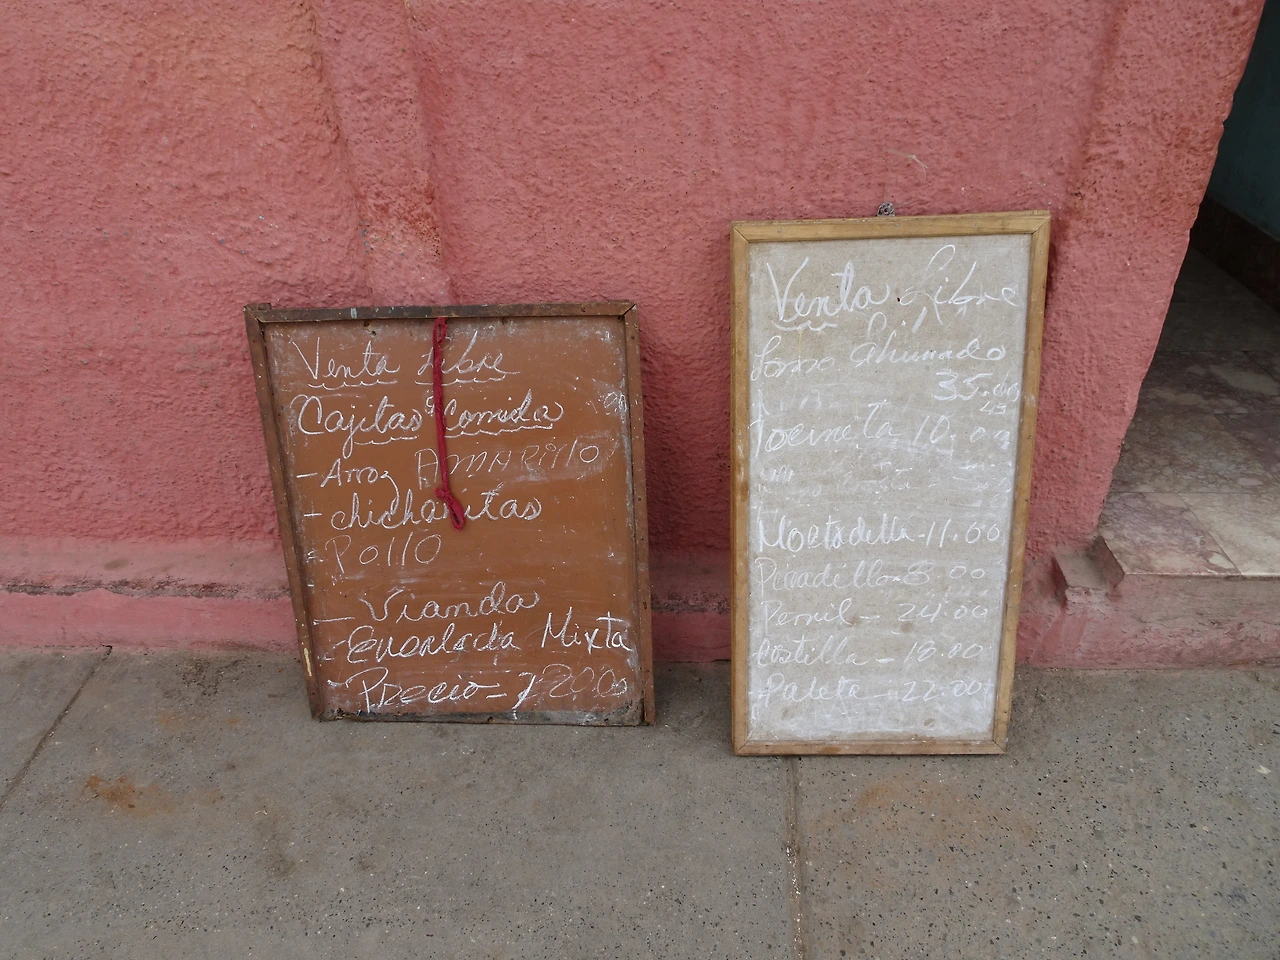 Venta Libre
Cajitas Comida
- Arroz AMARillo
- chicharritas
- Pollo
- Vianda
- Ensalada Mixta
- Precio -
Venta Libre
Lomo Ahumado
35.00
Tocineta 10.00
Mortadella - 11.00
Picadillo - 8.00
Pernil - 24.00
Costilla - 18.00
Paleta - 22.00